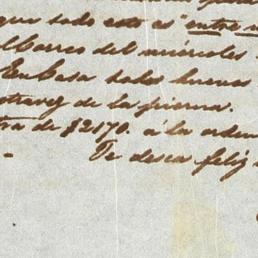 que todo esto es "entre n
el Correo del miércoles
En Casa todos buenos
otravez de la pierna.
tra de $2170. á la orden
Te desea feliz